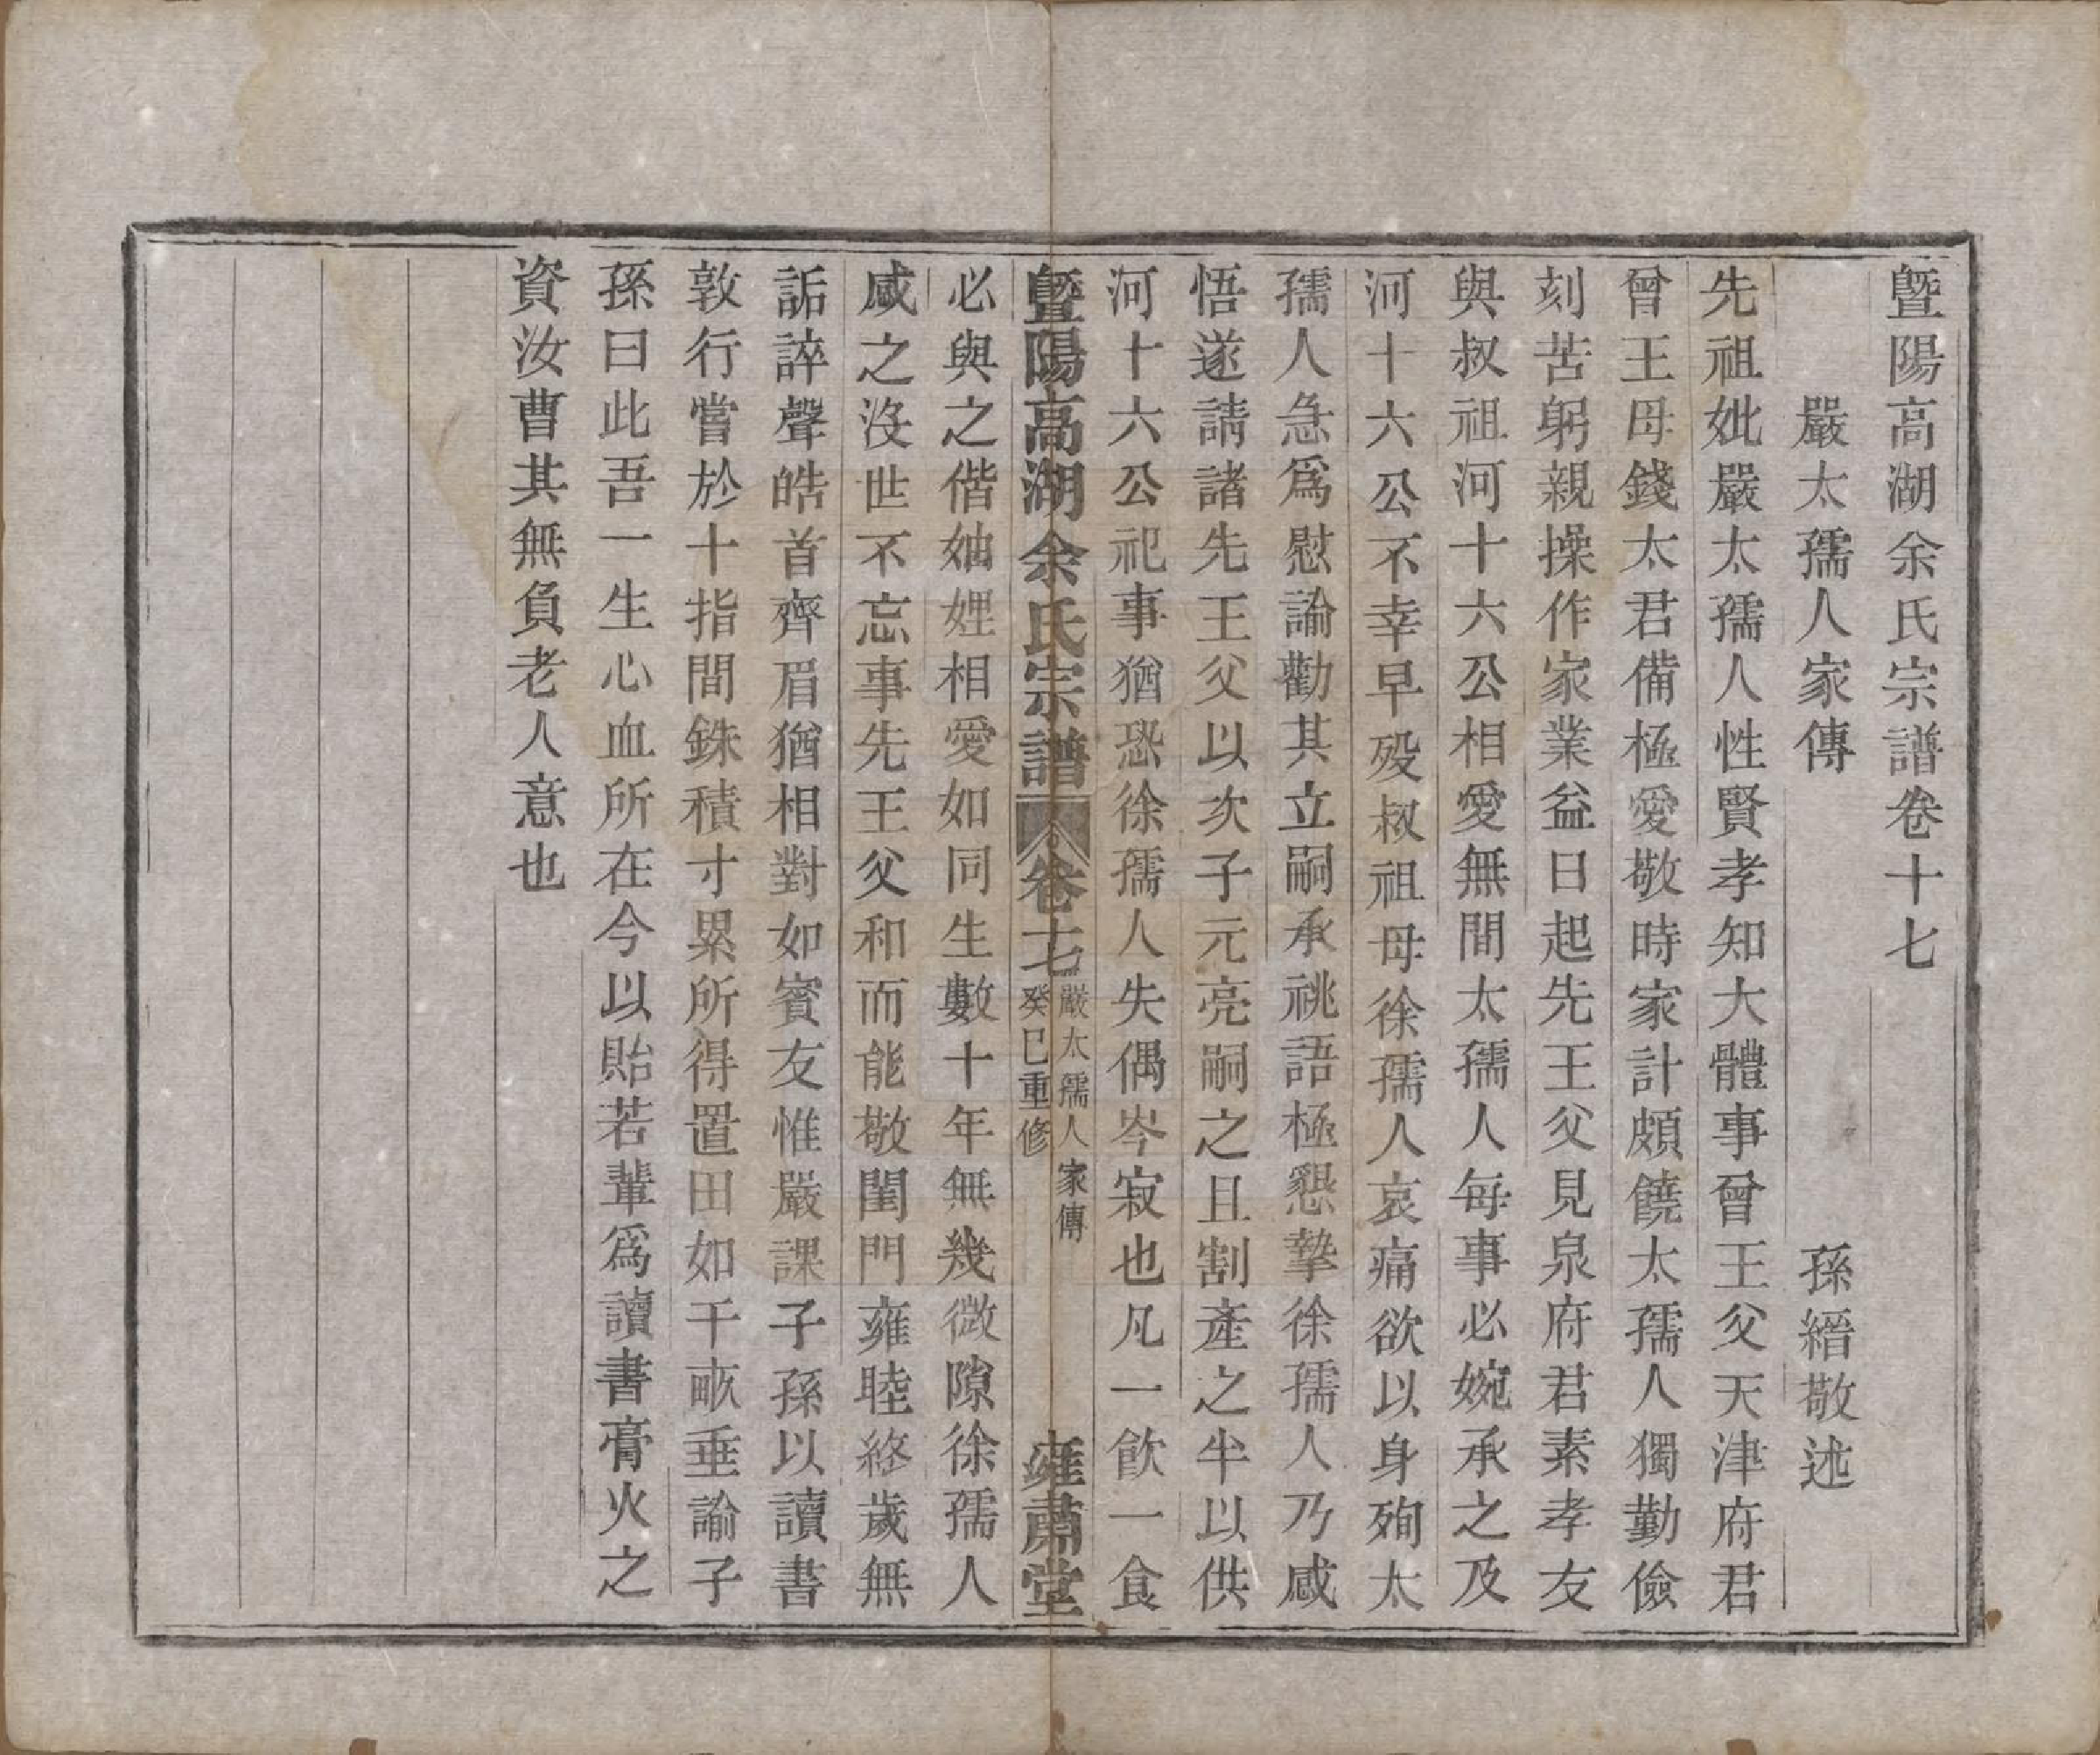 暨陽高湖余氏宗譜卷十七
嚴太孺人家傳　孫縉敬述
先祖妣嚴太孺人性賢孝知大體事曾王父天津府君
曾王母錢太君備極愛敬時家計頗饒太孺人獨勤儉
刻苦躬親操作家業益日起先王父見泉府君素孝友
與叔祖河十六公相愛無間太孺人每事必婉承之及
河十六公不幸早歿叔祖母徐孺人哀痛欲以身殉太
孺人急爲慰諭勸其立嗣承祧語極懇摯徐孺人乃感
悟遂請諸先王父以次子元亮嗣之且割產之半以供
河十六公祀事猶恐徐孺人失偶岑寂也凡一飲一食
暨陽高湖余氏宗譜　卷十七　嚴太孺人家傳　癸巳重修　雍肅堂
必與之偕妯娌相愛如同生數十年無幾微隙徐孺人
感之沒世不忘事先王父和而能敬閨門雍睦終歲無
詬誶聲皓首齊眉猶相對如賓友惟嚴課子孫以讀書
敦行嘗於十指間銖積寸累所得置田如干畝垂諭子
孫曰此吾一生心血所在今以貽若輩爲讀書膏火之
資汝曹其無負老人意也